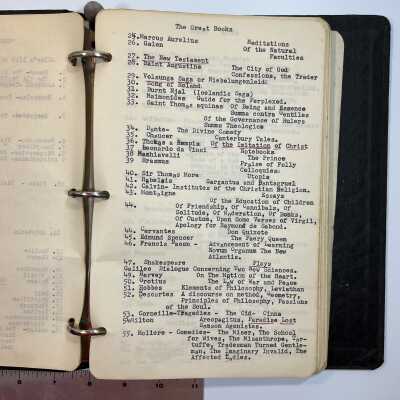 The Great Books
25.Marcus Aurelius Meditations
26. Galen Of the Natural
Faculties
27. The New Testament
28. Saint Augustine The City of God
Confessions, the Trader
29. Volsunga Saga or Nibelungenleid
30. Song of Roland
31. Burnt Njal (Icelandic Saga)
32. Maimonides Guide for the Perplexed.
33. Saint Thomas Aquinas Of Being and Essence
Summa contra Gentiles
Of the Governance of Rulers
Summa Theologica
34. Dante- The Divine Comedy
35. Chaucer Canterbury Tales.
36. Thomas a Kempis Of the Imitation of Christ
37 Leonardo da Vinci Notebooks
38 Machiavelli The Prince
39 Erasmus Praise of Folly
Colloquies.
40. Sir Thomas More Utopia
41. Rabelais Gargantua and Pantagruel
42. Calvin- Institutes of the Christian Religion.
43. Montaigne Essays
Of the Education of Children
44. Of Friendship, Of Cannibals, Of
Solitude, Of Moderation, Of Books,
Of Custom, Upon Some Verses of Virgil,
Apology for Raymond de Sebond.
44. Cervantes Don Quixote
45. Edmund Spencer The Faery Queen
46. Francis Bacon - Advancement of Learning
Novum Organum The New
Atlantis.
47. Shakespeare Plays
Galileo Dialogue Concerning Two New Sciences.
49. Harvey On The Motion of the Heart.
50. Grotius The Law of War and Peace
51. Hobbes Elements of Philosophy, Leviathan
52. Descartes A discourse on method, Geometry,
Principles of Philosophy, Passions
of the Soul.
53. Corneille-Tragedies - The Cid- Cinna
54Milton Areopagitus, Paradise Lost
Samson Agonistes.
55. Moliere - Comedies- The Miser, The School
for Wives, The Misanthrope, Tar-
tuffe, Tradesman Turned Gentle-
man, The Imaginary Invalid, The
Affected Ladies.